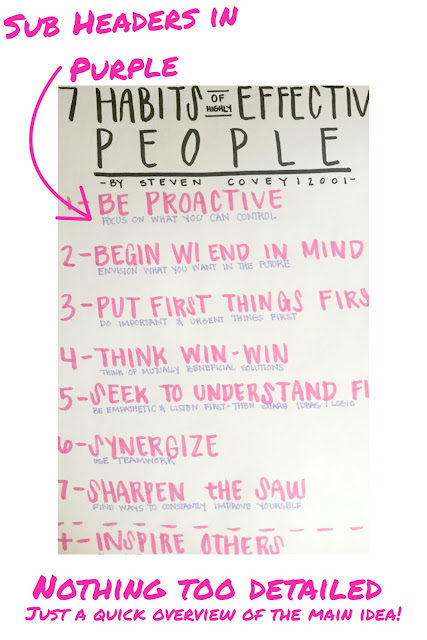 SUB HEADERS IN
PURPLE
7 HABITS OF HIGHLY EFFECTIV
PEOPLE
-BY STEVEN COVEY | 2001-
1-BE PROACTIVE
FOCUS ON WHAT YOU CAN CONTROL
2-BEGIN W/ END IN MIND
ENVISION WHAT YOU WANT IN THE FUTURE
3-PUT FIRST THINGS FIRS
DO IMPORTANT & URGENT THINGS FIRST
4-THINK WIN-WIN
THINK OF MUTUALLY BENEFICIAL SOLUTIONS
5-SEEK TO UNDERSTAND FI
BE EMPATHETIC & LISTEN FIRST-THEN SHARE IDEAS / LOGIC
6-SYNERGIZE
USE TEAMWORK
7-SHARPEN the SAW
FIND WAYS TO CONSTANTLY IMPROVE YOURSELF
+-INSPIRE OTHERS
NOTHING TOO DETAILED
JUST A QUICK OVERVIEW OF THE MAIN IDEA!